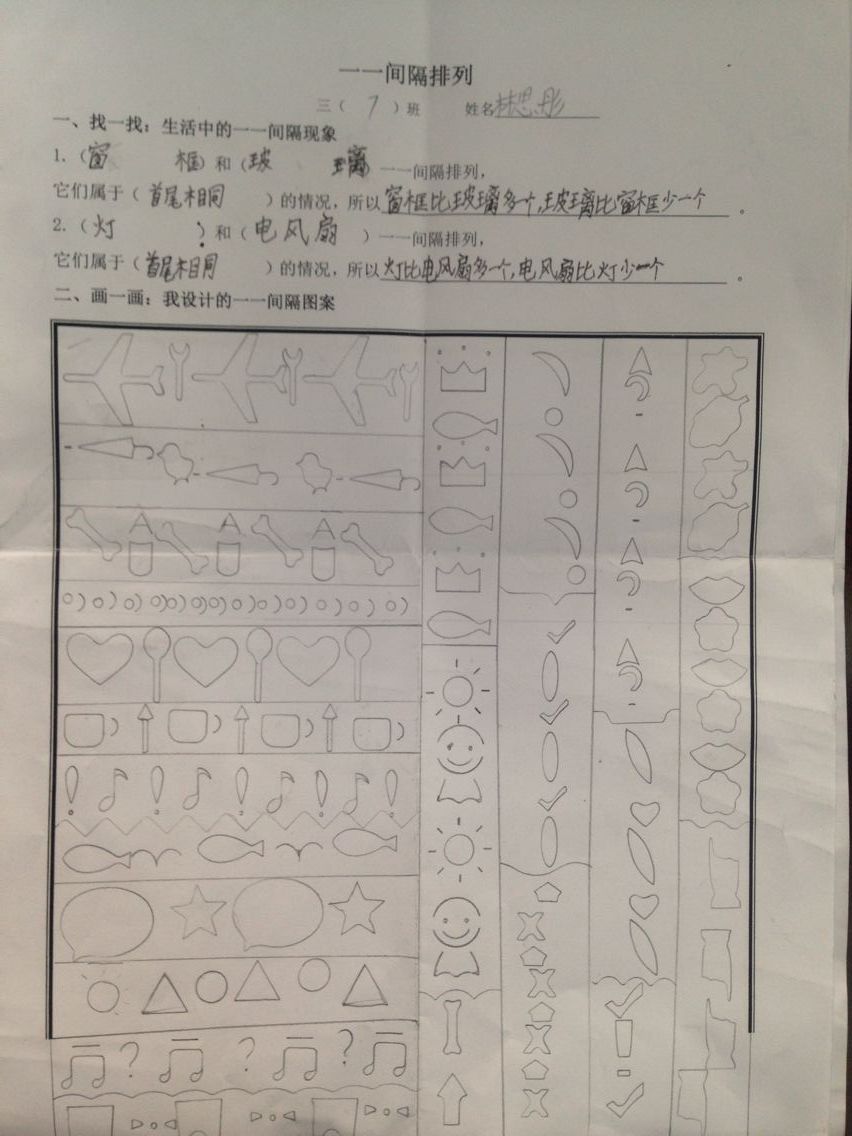 一一间隔排列
三（ 7 ）班 姓名林思彤
一、找一找：生活中的一一间隔现象
1.（窗 框）和（玻 璃）一一间隔排列，
它们属于（首尾相同 ）的情况，所以窗框比玻璃多一个,玻璃比窗框少一个。
2.（灯 ）和（电风扇 ）一一间隔排列，
它们属于（首尾相同 ）的情况，所以灯比电风扇多一个,电风扇比灯少一个。
二、画一画：我设计的一一间隔图案